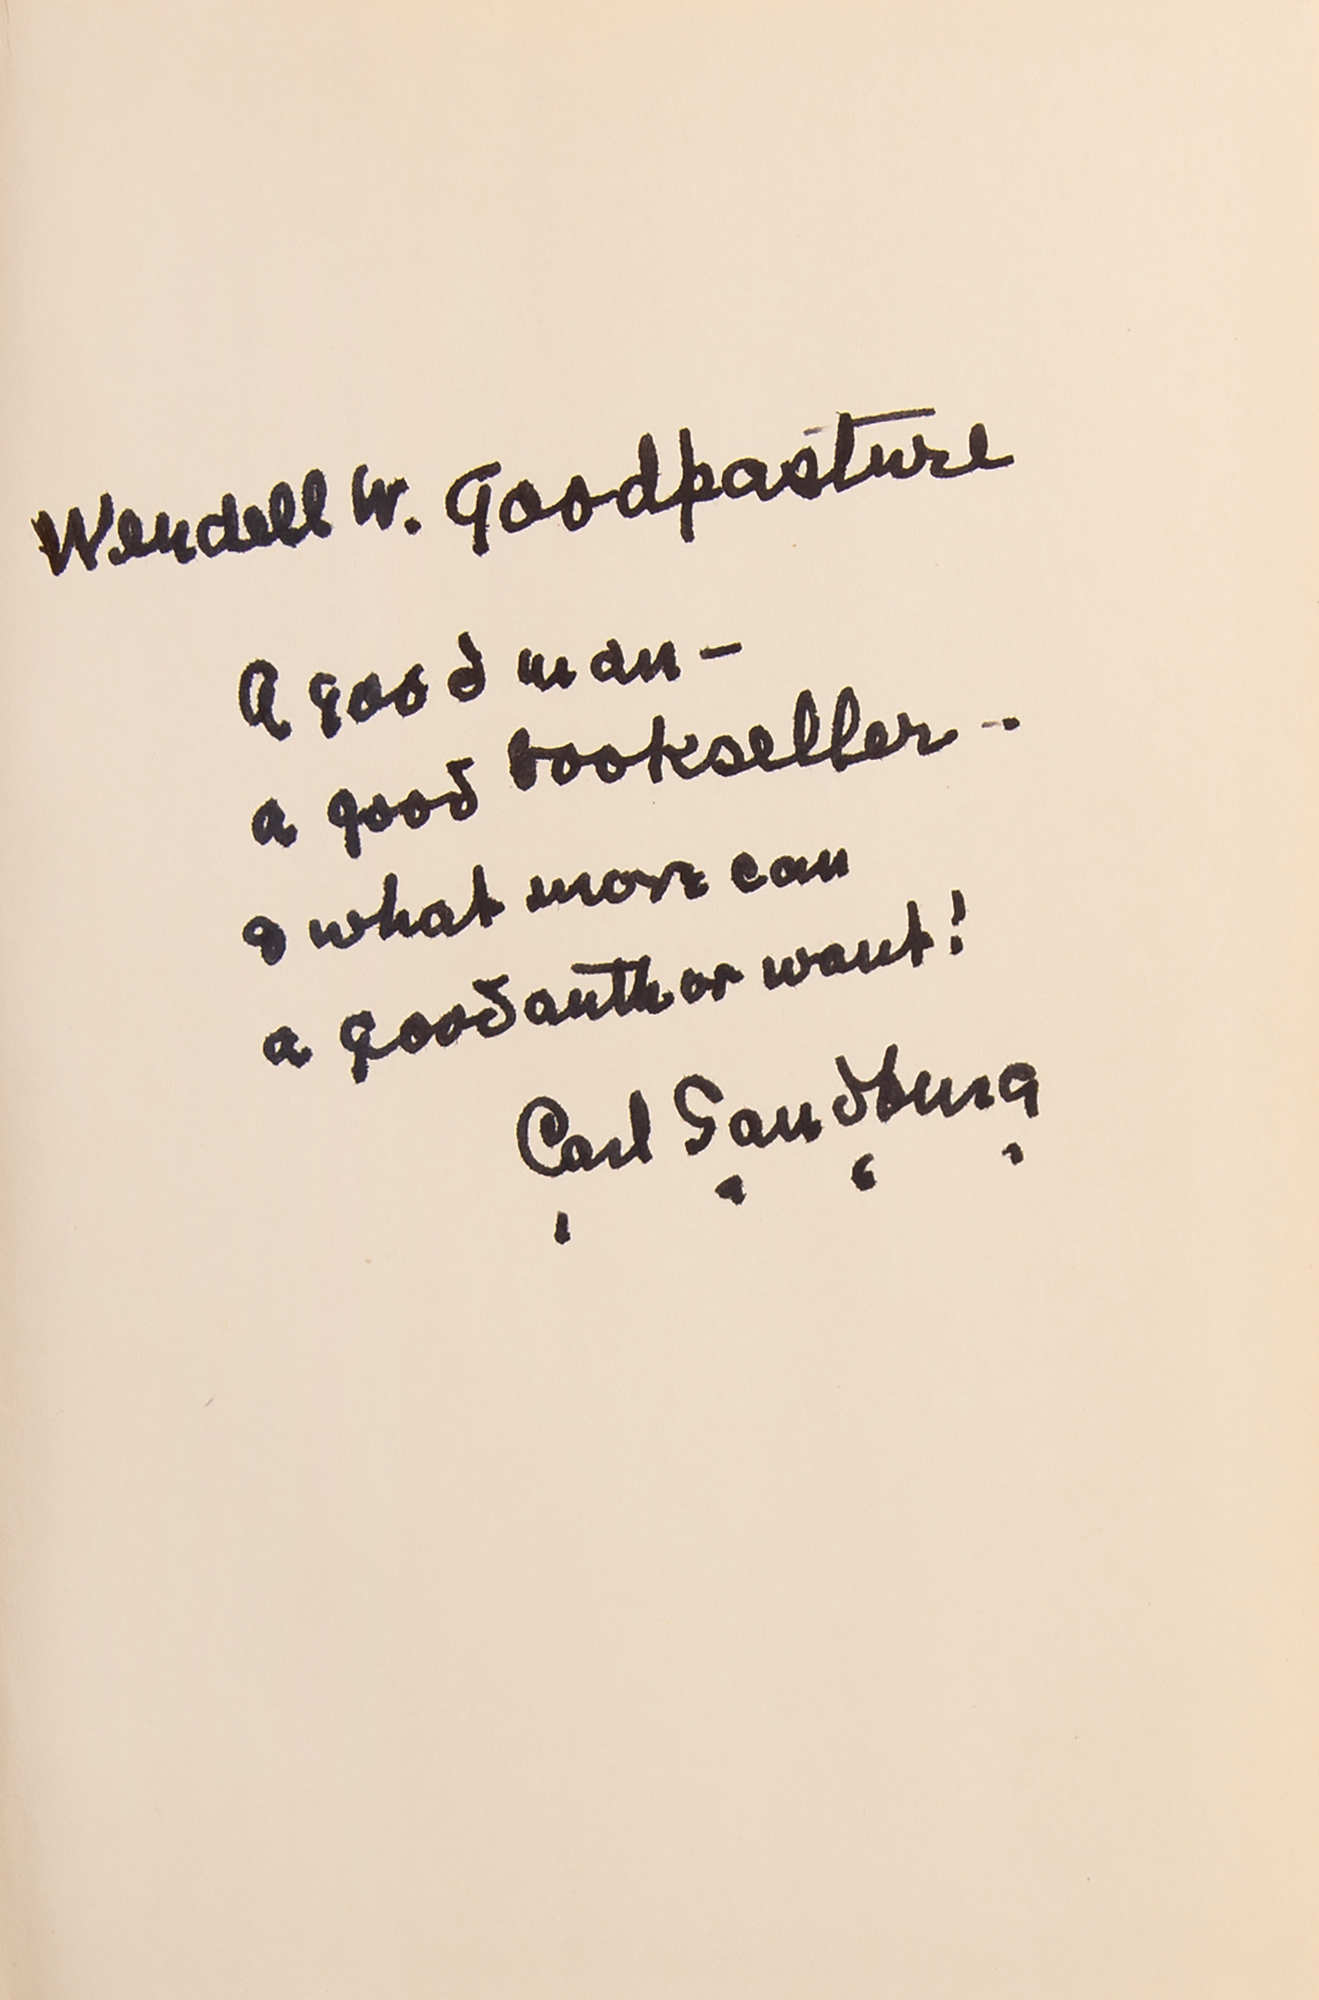 Wendell W. Goodpasture
A good man –
a good bookseller –
& what more can
a good author want!
Carl Sandburg